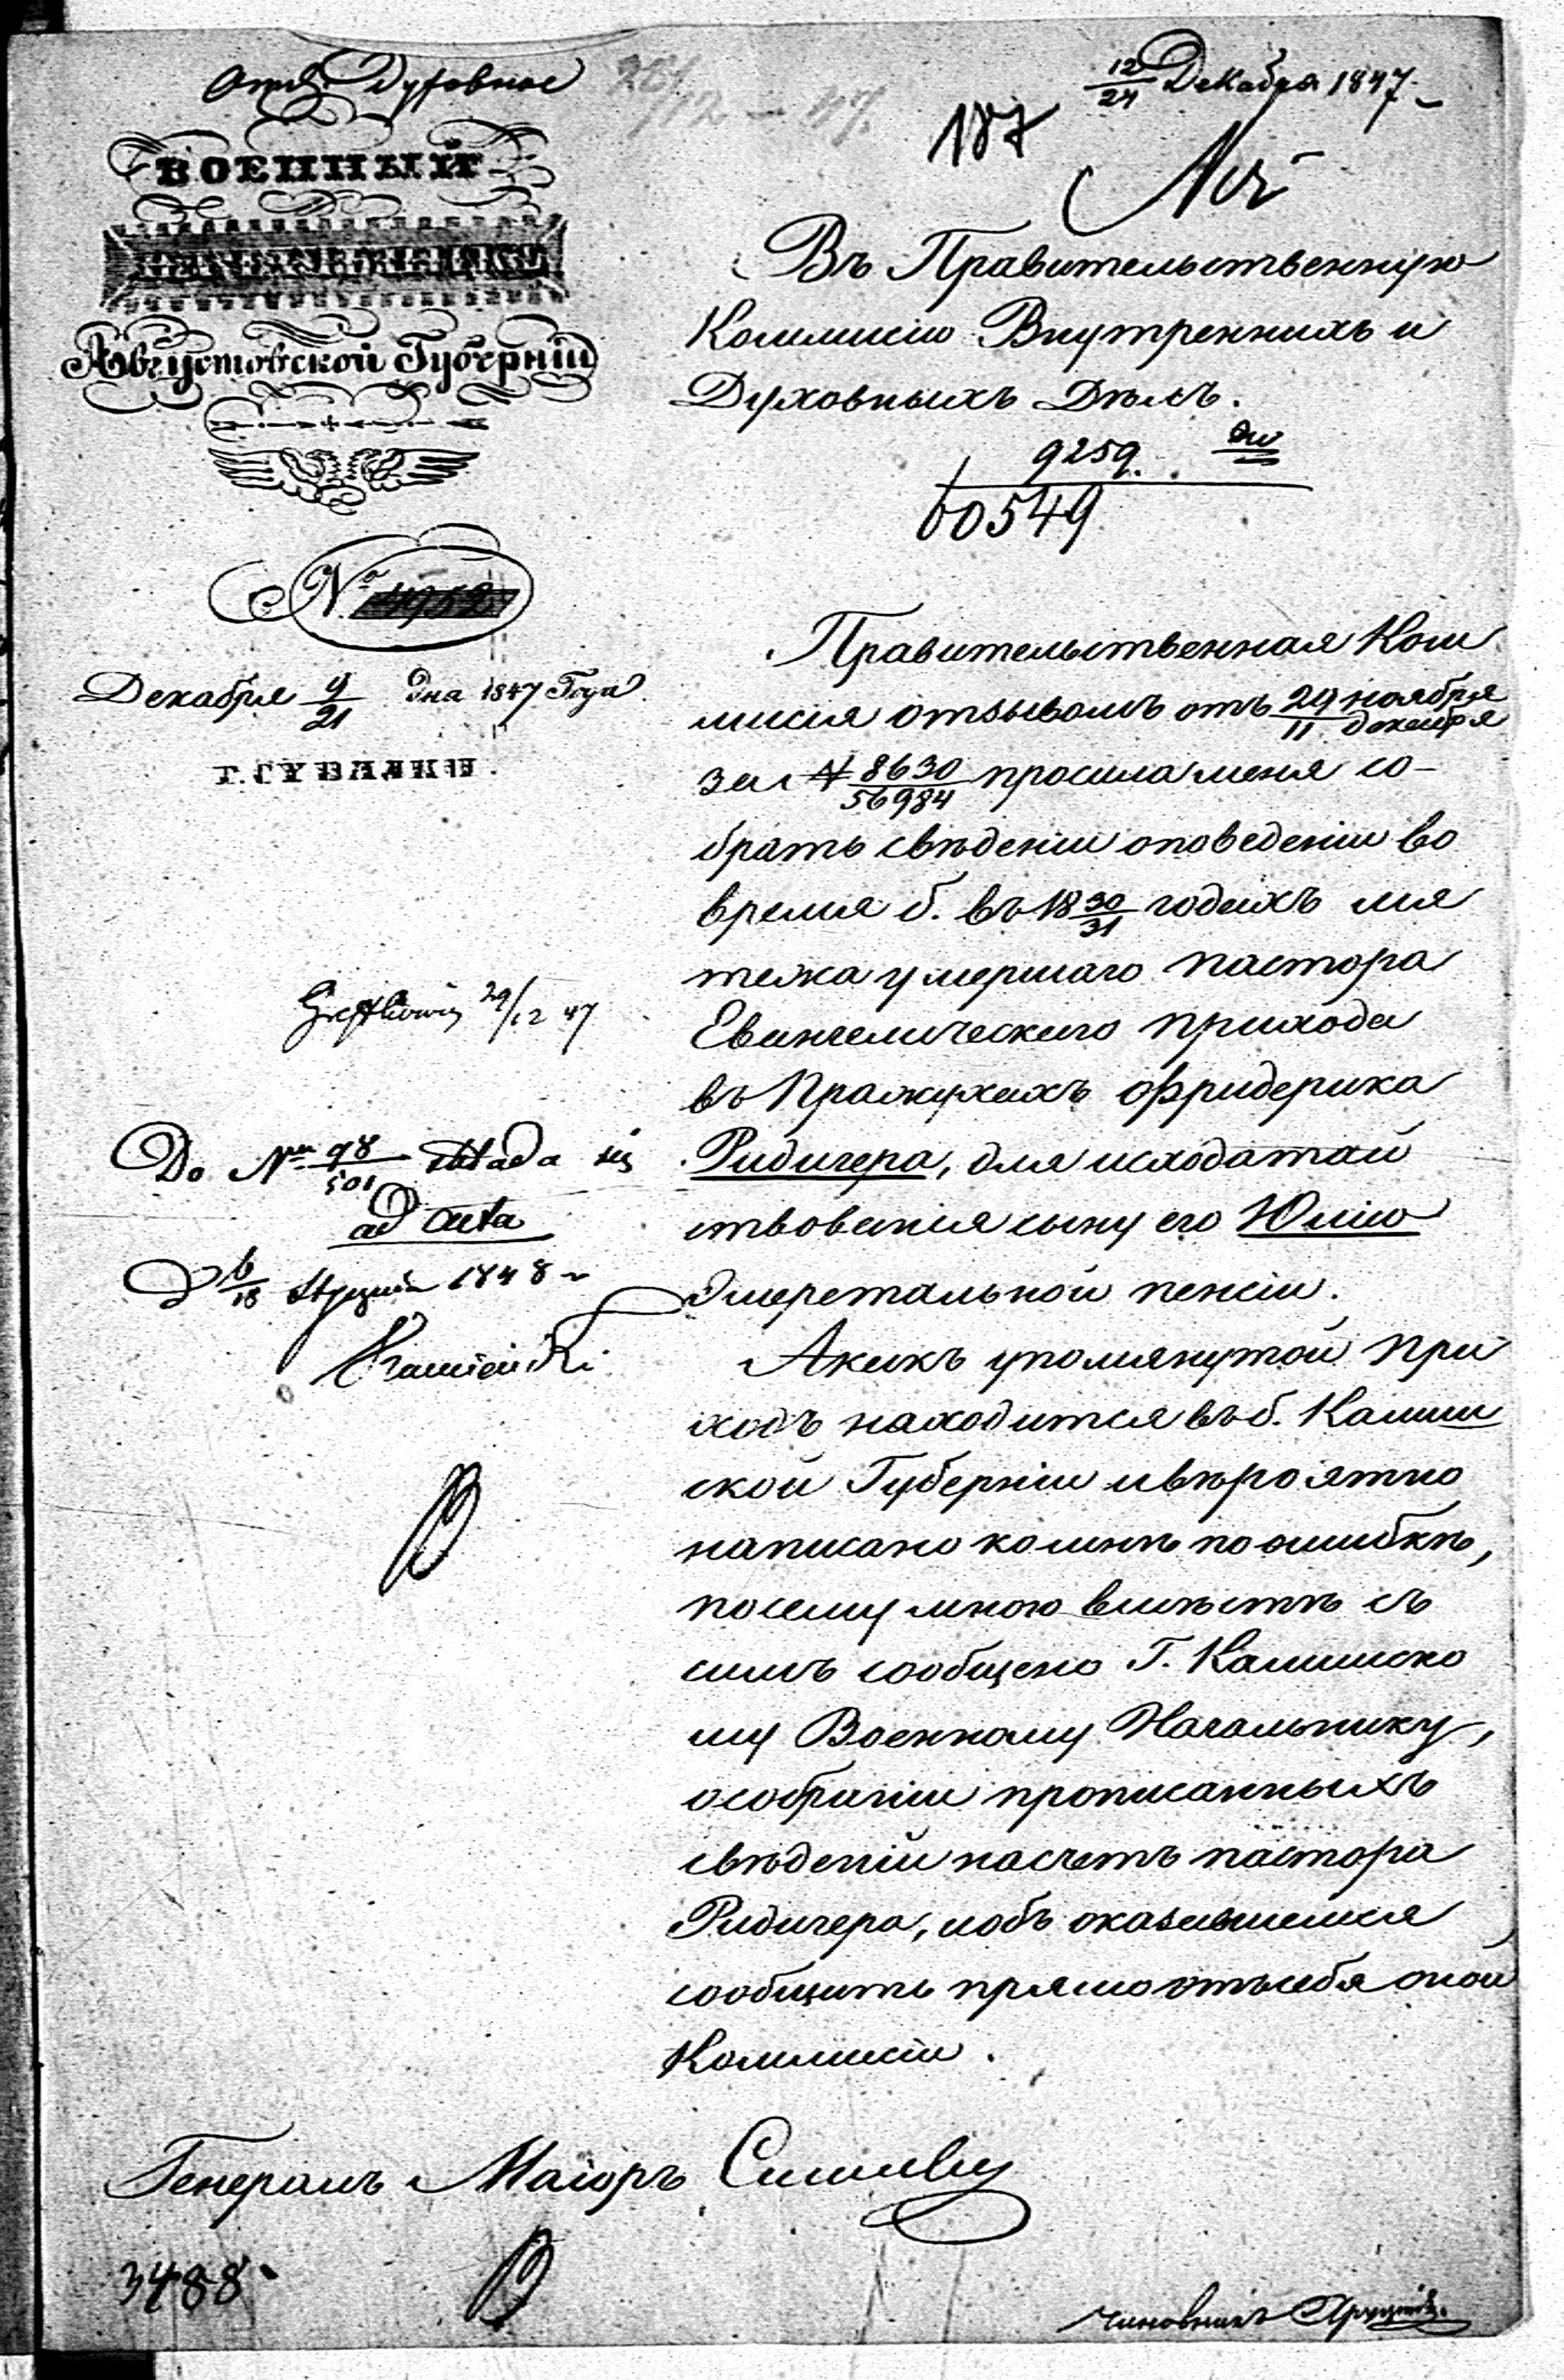 Духовное
12/24 Декабря 1847.
187
ВОЕННЫЙ
НАЧАЛЬНИКЪ
Августовской Губерніи
№ 4952
Декабря 9/21 дня 1847 Года
Г. СУВАЛКИ.
Въ Правительственную
Коммисію Внутреннихъ и
Духовныхъ Дѣлъ.
9259.
60549
Правительственная Ком
мисія отзывомъ отъ 29 ноября/11 декабря
за № 8630/56984 просила меня со-
брать свѣденіи о поведеніи во
время б. въ 1830/31 годахъ мя
тежа умершаго пастора
Евангелическаго прихода
въ Пражухахъ Фридерика
Ридигера, для исходатай
ствованія сыну его Юлію
Эмеретальной пенсіи.
А какъ упомянутой При
ходъ находится въ б. Калиш
ской Губерніи и вѣроятно
написано ко мнѣ по ошибкѣ,
посему мною вмѣстѣ съ
симъ сообщено Г. Калишско
му Военному Начальнику,
о собраніи прописанныхъ
свѣденій насчетъ пастора
Ридигера, и объ оказавшемся
сообщить прямо отъ себя оной
Коммисіи.
29/12 47
Do Nru 98/501
ad acta
D 6/18 Stycznia 1848
Генералъ Маіоръ
3488
Чиновникъ